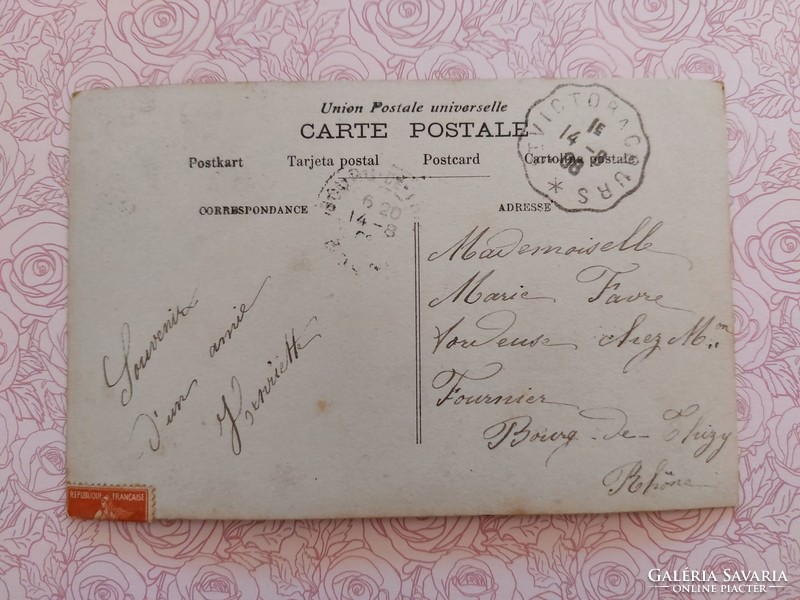 Union Postale universelle
CARTE POSTALE
Postkart Tarjeta postal Postcard Cartolina postale
CORRESPONDANCE
ADRESSE
ST VICTOR A COURS
15
14 -8
08
6 20
14-8
Souvenir
d'un amie
Henriette
Mademoiselle
Marie Favre
tordeuse chez Mon
Fournier
Bourg-de-Thizy
Rhône
REPUBLIQUE FRANÇAISE
GALÉRIA SAVARIA
ONLINE PIACTÉR